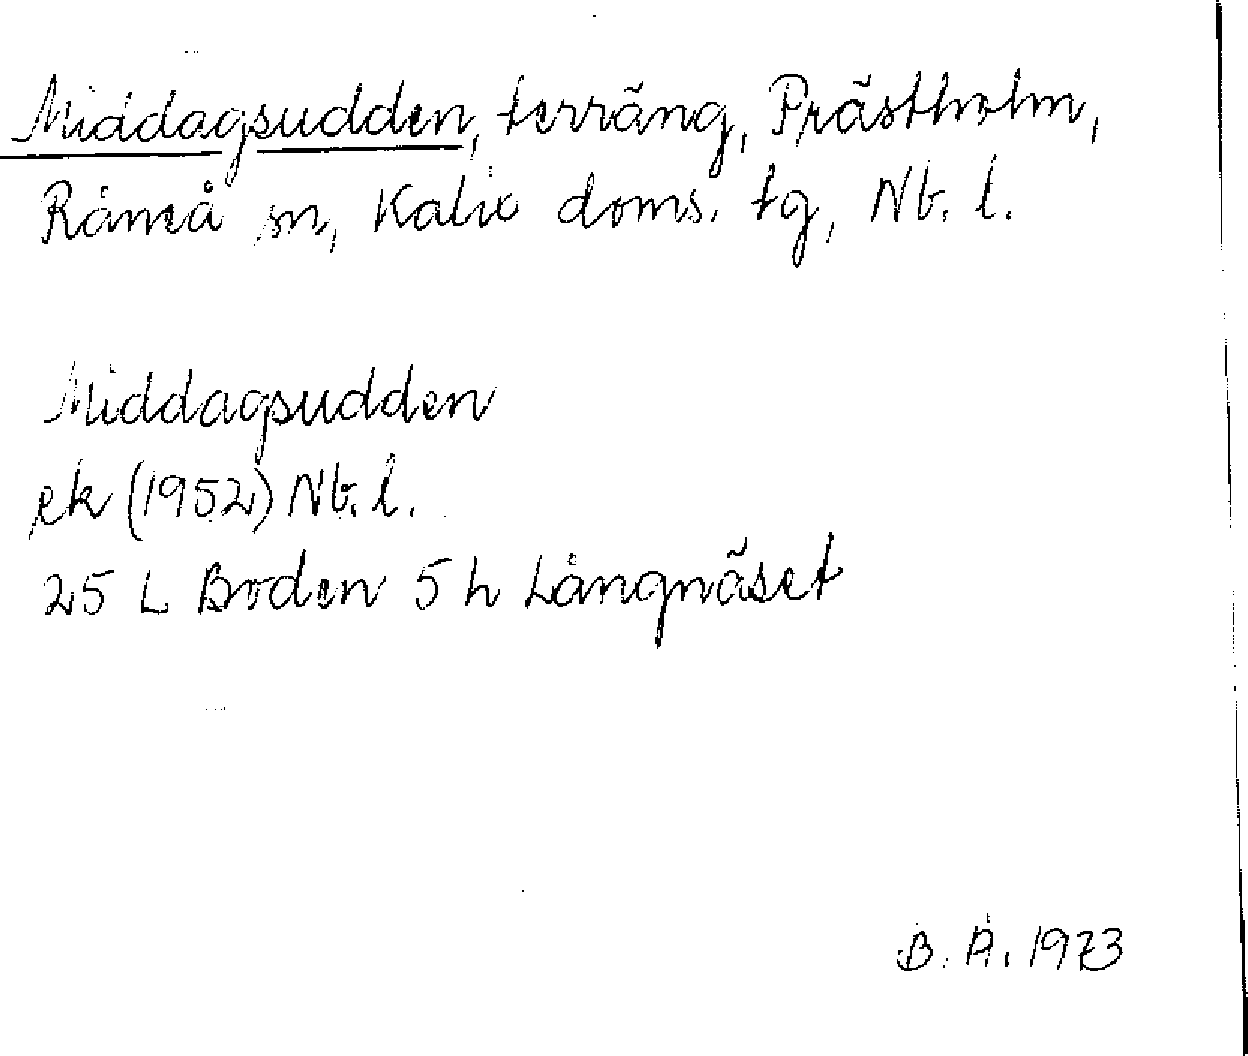 Middagsudden, terräng, Prästholm,
Råneå sn, Kalix doms. tg, Nb. l.
Middagsudden
ek (1952) Nb. l.
25 L Boden 5 h Långnäset
B. Å. 1973